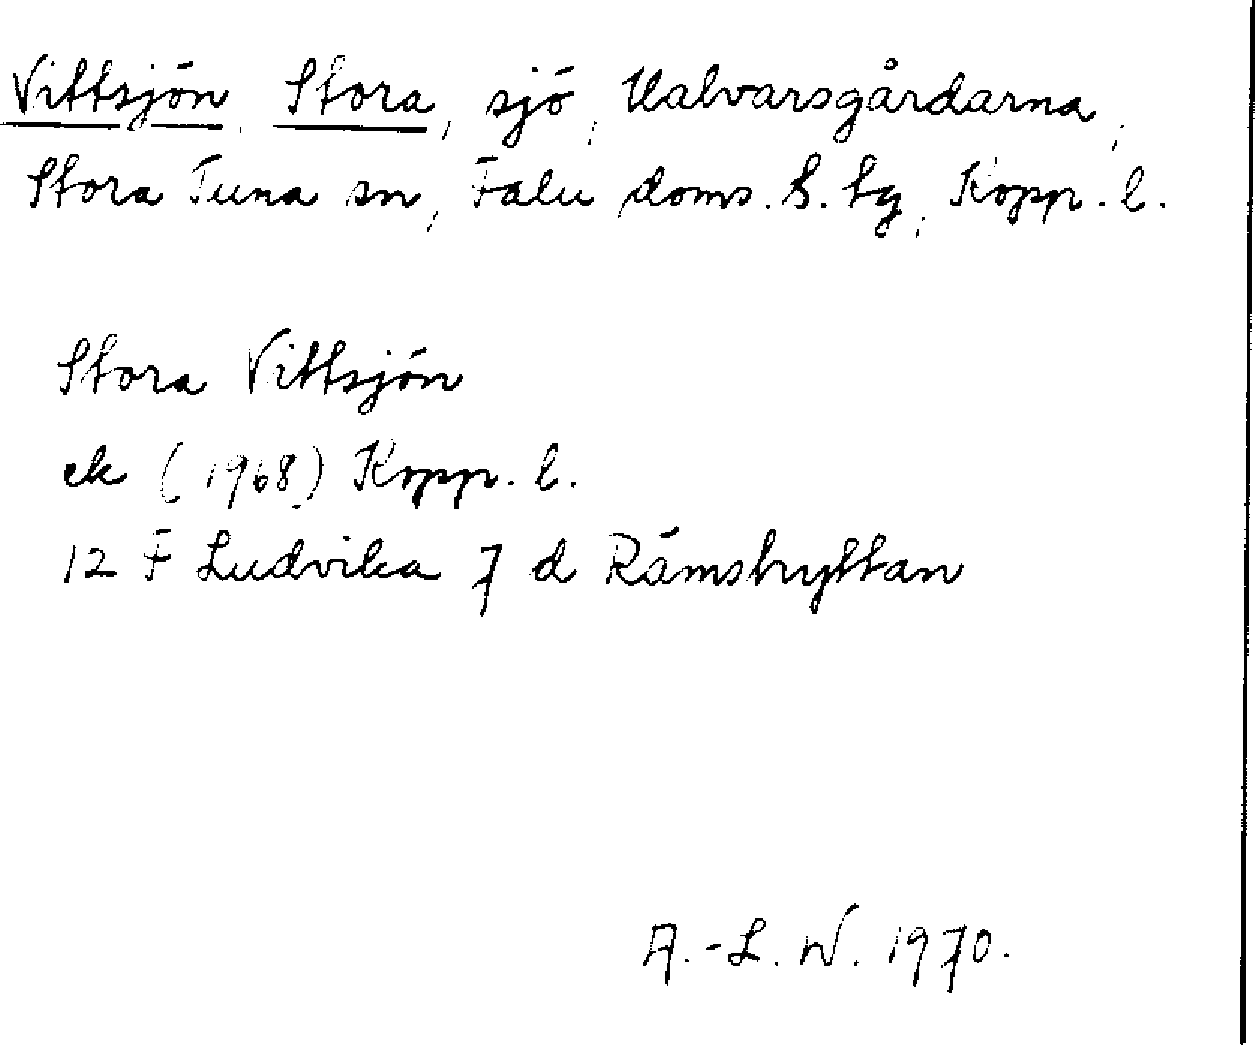 Vittsjön, Stora, sjö, Ualvarsgårdarna,
Stora Tuna sn, Falu doms. s. tg, Kopp. l.
Stora Vittsjön
ek (1968) Kopp. l.
12 F Ludvika 7 d Rämshyttan
A.-L. W. 1970.